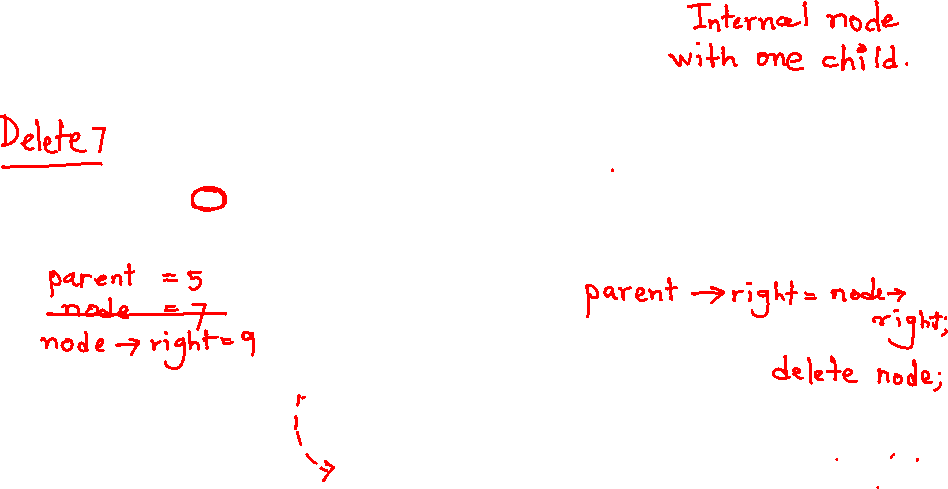 Internal node
with one child.
Delete 7
parent = 5
node = 7
node → right = 9
parent → right = node →
right;
delete node;